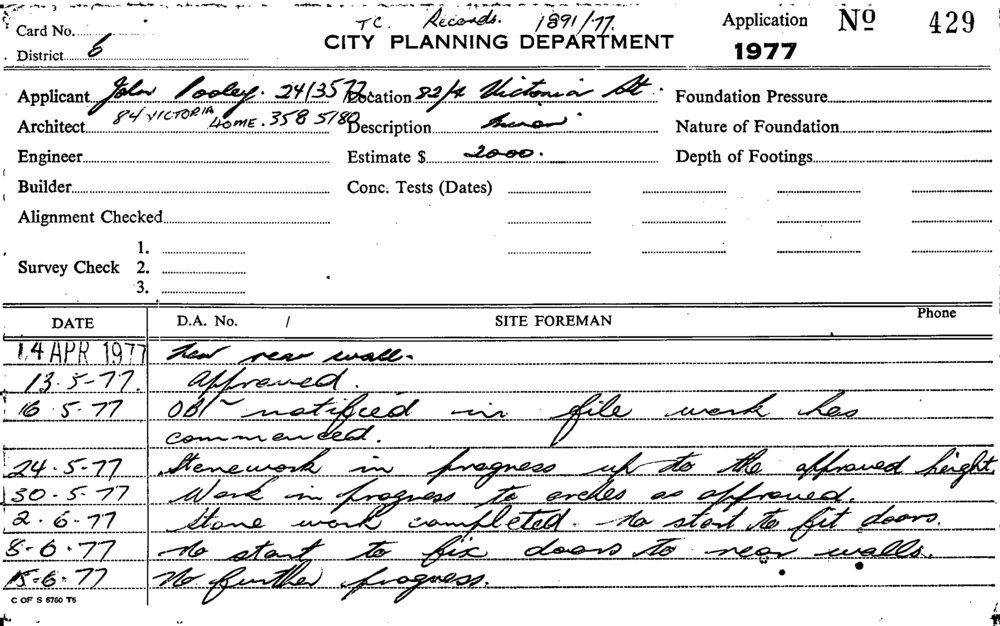 T.C. Records. 1891/77.
Card No.
District 6
CITY PLANNING DEPARTMENT
Application No 429
1977
Applicant John Pooley. 2413577. Location 82/4 Victoria St. Foundation Pressure
84 VICTORIA HOME. 358 5180
Architect Description Nature of Foundation
Engineer Estimate $ 2000. Depth of Footings
Builder Conc. Tests (Dates)
Alignment Checked
Survey Check 1.
2.
3.
DATE D.A. No. / SITE FOREMAN Phone
14 APR 1977 New rear wall.
13.5-77. Approved.
16.5.77 notified in file work has
commenced.
24.5-77 Stonework in progress up to the approved height
30.5.77 Work in progress to arches as approved.
2.6.77 Stone work completed. No start to fit doors.
8-6.77 No start to fix doors to rear walls.
15-6.77 No further progress.
C OF S 6760 T5